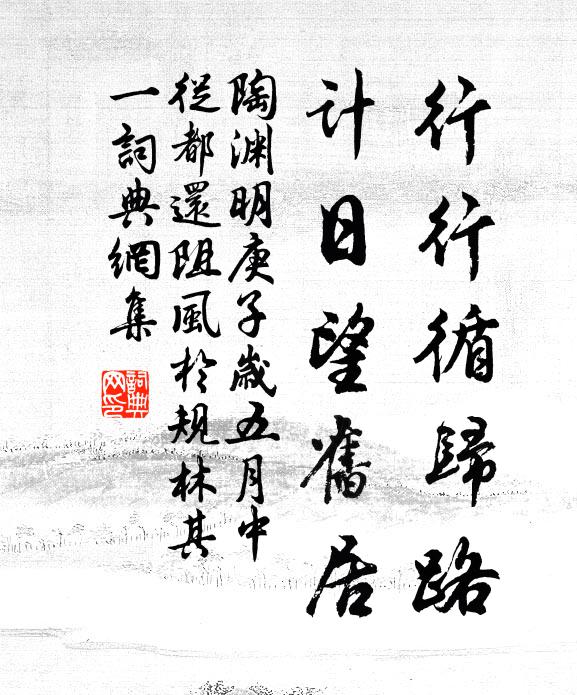 行行循歸路
計日望舊居
陶渊明庚子歲五月中
從都還阻風於規林其
一詞典網集
詞典
网印